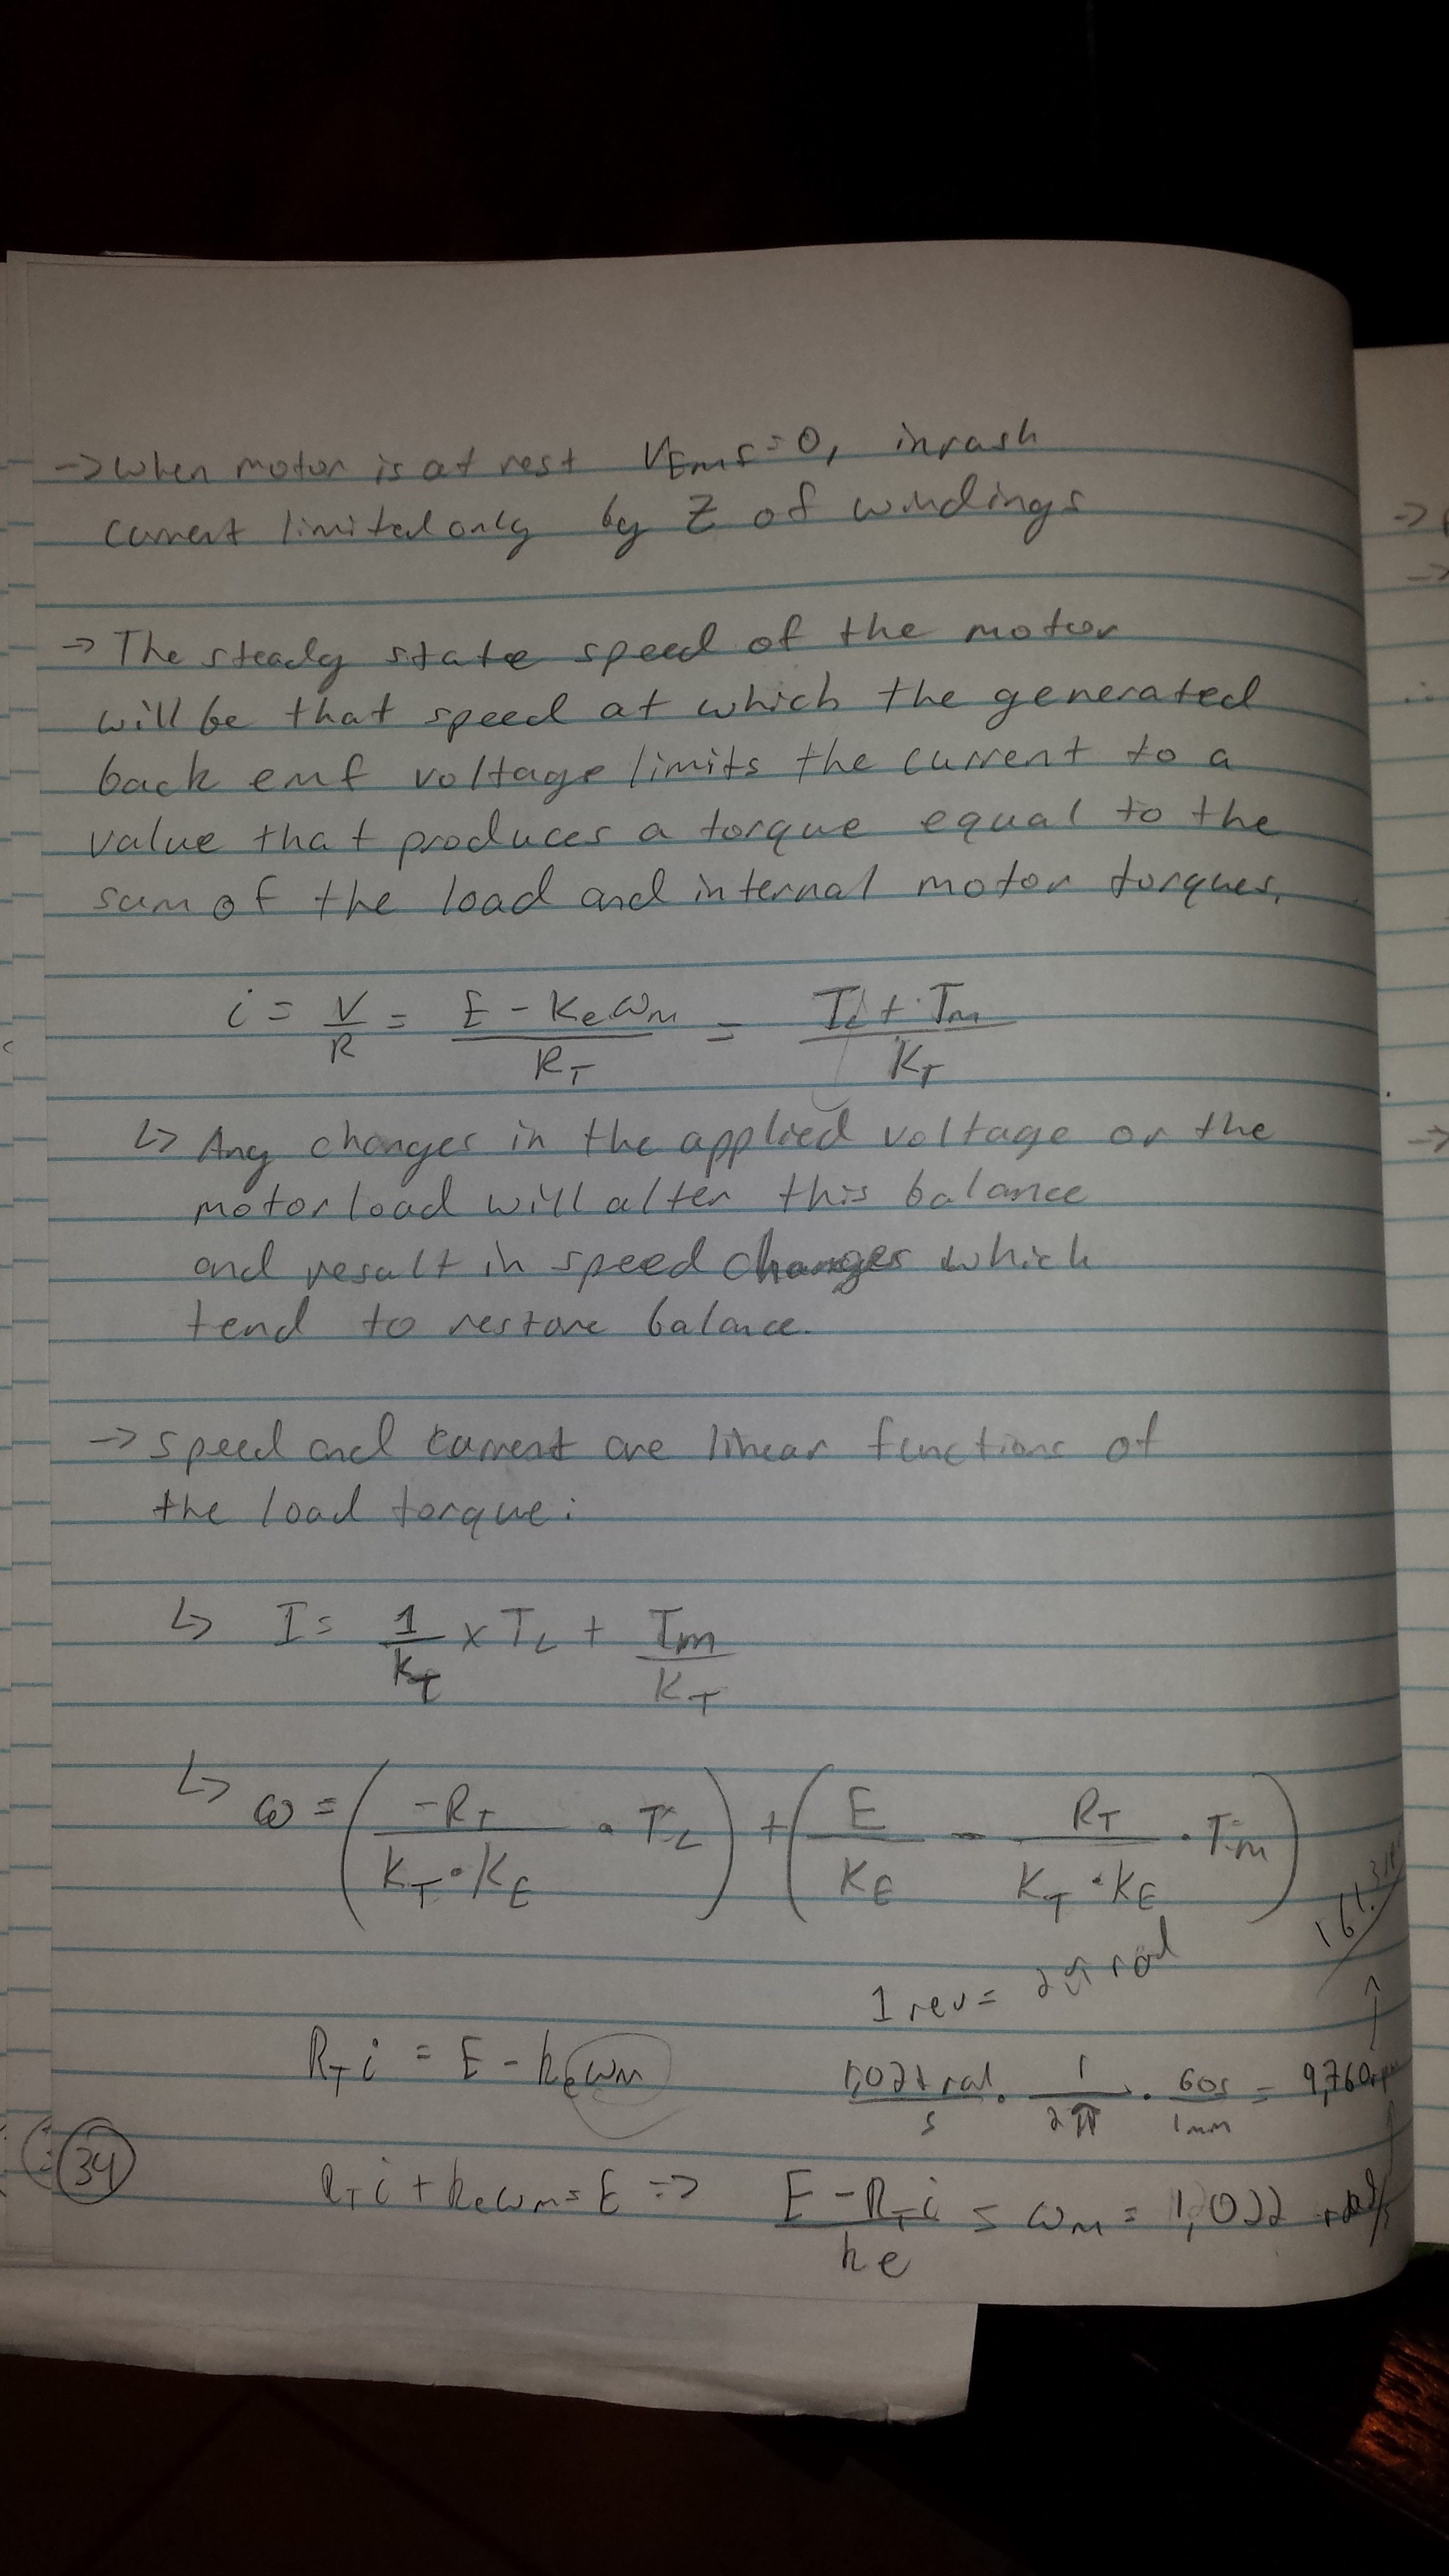 -> When motor is at rest VEmf = 0, inrush
current limited only by Z of windings
-> The steady state speed of the motor
will be that speed at which the generated
back emf voltage limits the current to a
value that produces a torque equal to the
sum of the load and internal motor torques.
i = V/R = (E - Keωm)/RT = (TL + Tm)/KT
↳ Any changes in the applied voltage or the
motor load will alter this balance
and result in speed changes which
tend to restore balance.
-> speed and current are linear functions of
the load torque:
↳ I = 1/KT × TL + Tm/KT
↳ ω = (-RT/(KT · KE) · TL) + (E/KE - RT/(KT · KE) · Tm)
1 rev = 2π rad
RT i = E - keωm
rad/s · 1/2π · 60s/1min = 9,760 rpm
34
RT i + keωm = E => (E - RT i)/ke = ωm = 1,022 rad/s